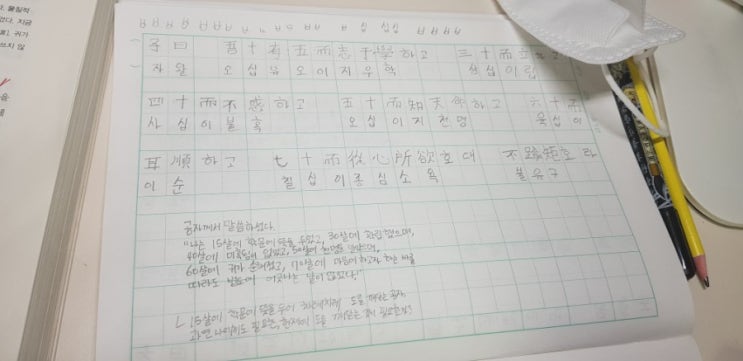 子曰 吾十有五而志于學하고 三十而立
자왈 오십유오이지우학 삼십이립
四十而不惑하고 五十而知天命하고 六十而
사십이불혹 오십이지천명 육십이
耳順하고 七十而從心所欲호대 不踰矩호라
이순 칠십이종심소욕 불유구
공자께서 말씀하셨다.
"나는 15살에 학문에 뜻을 두었고, 30살에 자립했으며,
40살에 미혹됨이 없었고, 50살에 천명을 알았으며,
60살에 귀가 순해졌고, 70살에 마음이 하고자 하는 바를
따라도 법도에 어긋나는 일이 없었다."
ㄴ 15살에 학문에 뜻을 두어 도를 깨우친 공자.
과연 나에게도 필요한, 현재에 도를